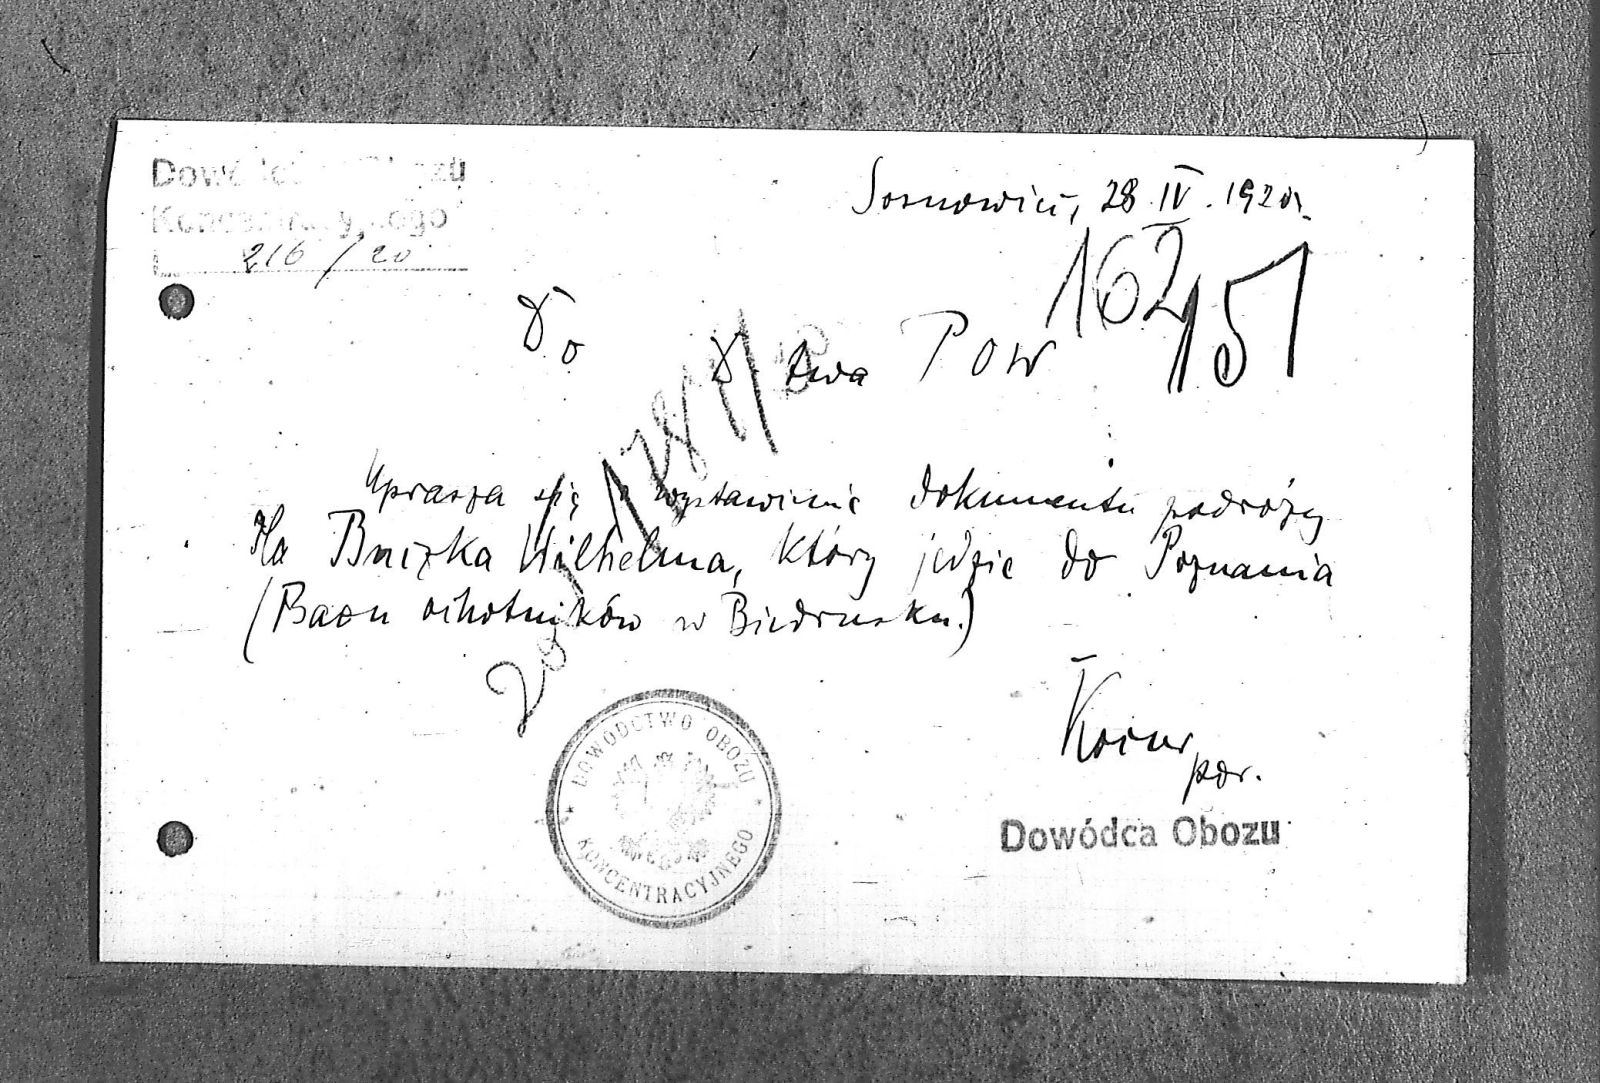 Dowództwo Obozu
Koncentracyjnego
L. 216/20
Sosnowice, 28.IV.1920r.
162
151
Do
D-twa POW
Uprasza się o wystawienie dokumentu podróży
dla Buczka Wilhelma, który jedzie do Poznania
(Baon ochotników w Biedrusku.)
por.
Dowódca Obozu
DOWÓDCTWO OBOZU
KONCENTRACYJNEGO